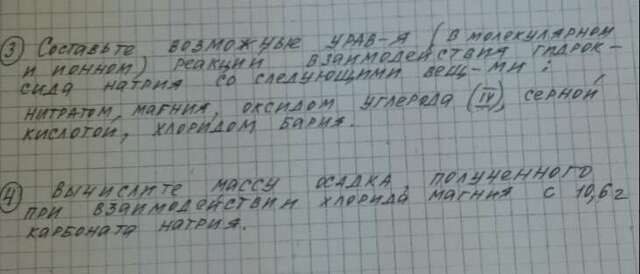 ③ Составьте возможные урав-я (в молекулярном
и ионном) реакции взаимодействия гидрок-
сида натрия со следующими вещ-ми:
нитратом, магния, оксидом углерода (IV), серной
кислотой, хлоридом бария.
④ Вычислите массу осадка, полученного
при взаимодействии хлорида магния с 10,6 г
карбоната натрия.